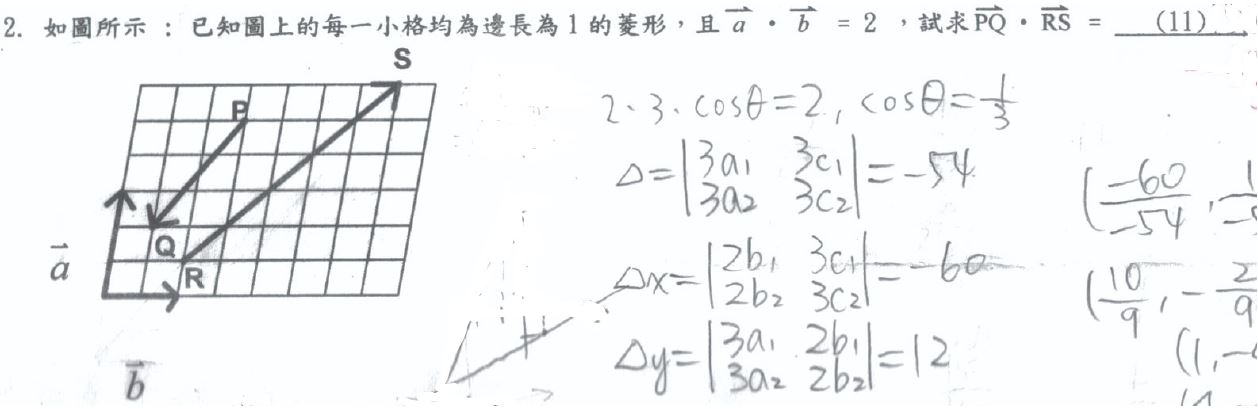 2. 如圖所示 : 已知圖上的每一小格均為邊長為 1 的菱形，且 a · b = 2 ，試求PQ · RS = (11)
S
P
Q
R
a
b
2·3·cosθ=2, cosθ=1/3
Δ=|3a₁ 3c₁|=-54
|3a₂ 3c₂|
Δx=|2b₁ 3c₁|=-60
|2b₂ 3c₂|
Δy=|3a₁ 2b₁|=12
|3a₂ 2b₂|
(-60/-54,
(10/9, -2/9
(1,-